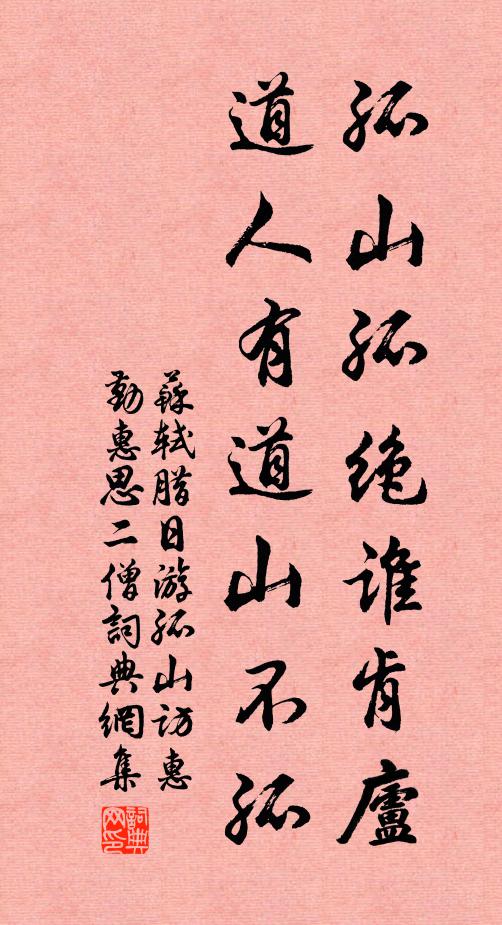 孤山孤絶誰肯廬
道人有道山不孤
蘇軾腊日游孤山訪惠
勤惠思二僧詞典網集
詞典
网印